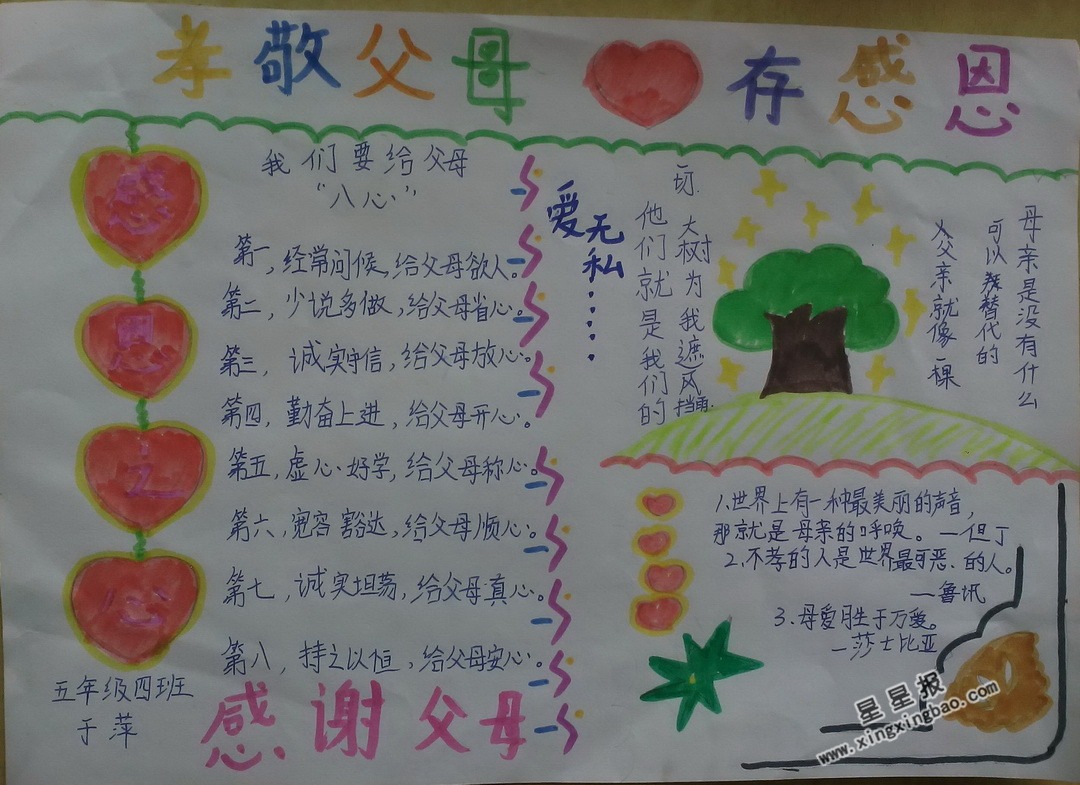 孝敬父母 存感恩
感
恩
之
心
我们要给父母
“八心”
第一,经常问候,给父母欲人。
第二,少说多做,给父母省心。
第三,诚实守信,给父母放心。
第四,勤奋上进,给父母开心。
第五,虚心好学,给父母称心。
第六,宽容豁达,给父母顺心。
第七,诚实坦荡,给父母真心。
第八,持之以恒,给父母安心。
感谢父母
五年级四班
于萍
爱无私……
母亲是没有什么
可以替代的
父亲就像一棵
大树为我遮风挡雨.
他们就是我们的
一切.
1.世界上有一种最美丽的声音,
那就是母亲的呼唤。—但丁
2.不孝的人是世界最可恶的人。
—鲁讯
3.母爱胜于万爱。
—莎士比亚
星星报
www.xingxingbao.com